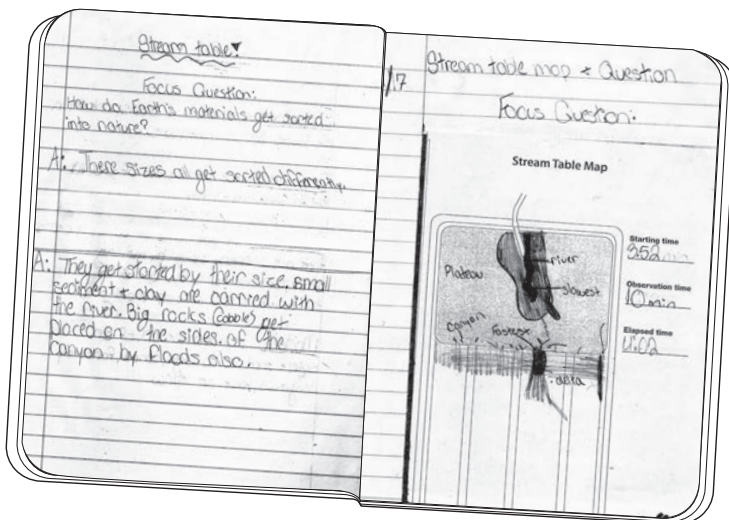 Stream table
Focus Question:
How do Earth's materials get sorted
into nature?
A: There sizes all get sorted differently.
A: They get started by their size. small
sediment + clay are carried with
the river. Big rocks (cobble) get
placed on the sides of the
canyon by floods also.
17
Stream table map + Question
Focus Question:
Stream Table Map
river
Plateau
slowest
canyon
Fastest
delta
Starting time
3:52
Observation time
10 min
Elapsed time
4:02